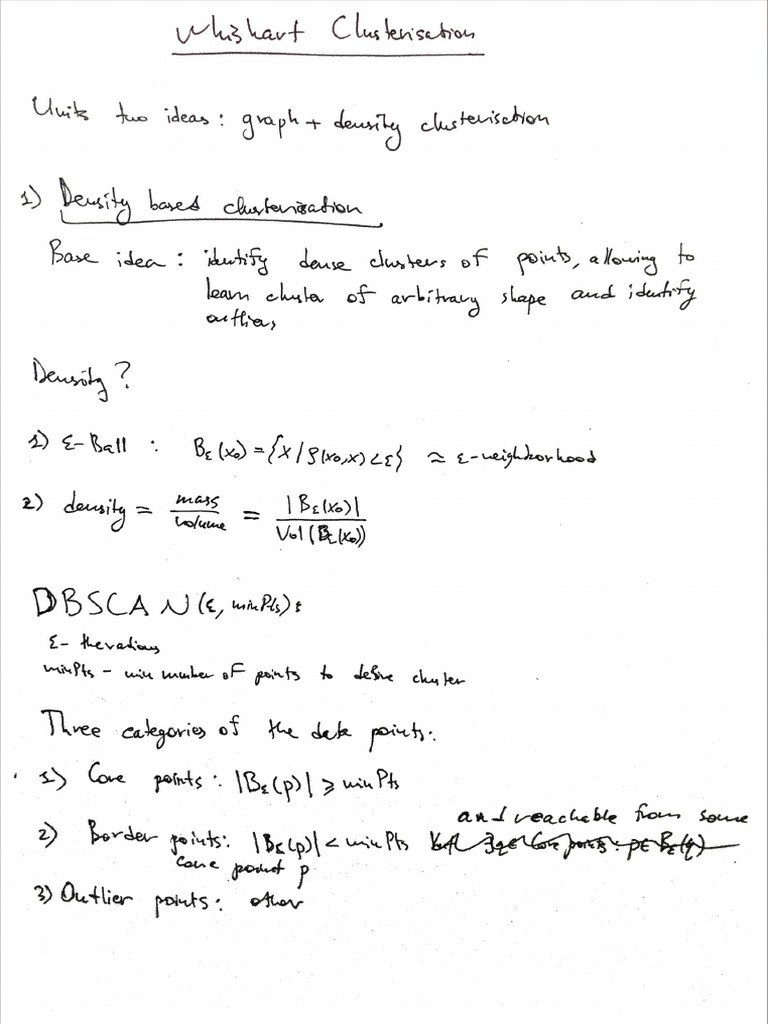 Whishart Clusterisation
Units two ideas: graph + density clusterisation
1) Density based clusterisation
Base idea: identify dense clusters of points, allowing to
learn cluster of arbitrary shape and identify
outliers
Density?
1) ε-Ball : Bε(x₀) = {x / ρ(x₀,x) < ε} ≈ ε-neighborhood
2) density = mass/volume = |Bε(x₀)| / Vol(Bε(x₀))
DBSCAN (ε, minPts):
ε -
minPts - min number of points to define cluster
Three categories of the data points:
1) Core points: |Bε(p)| ⩾ minPts
and reachable from some
2) Border points: |Bε(p)| < minPts ∃q∈ Core points: p∈ Bε(q)
core point p
3) Outlier points: other